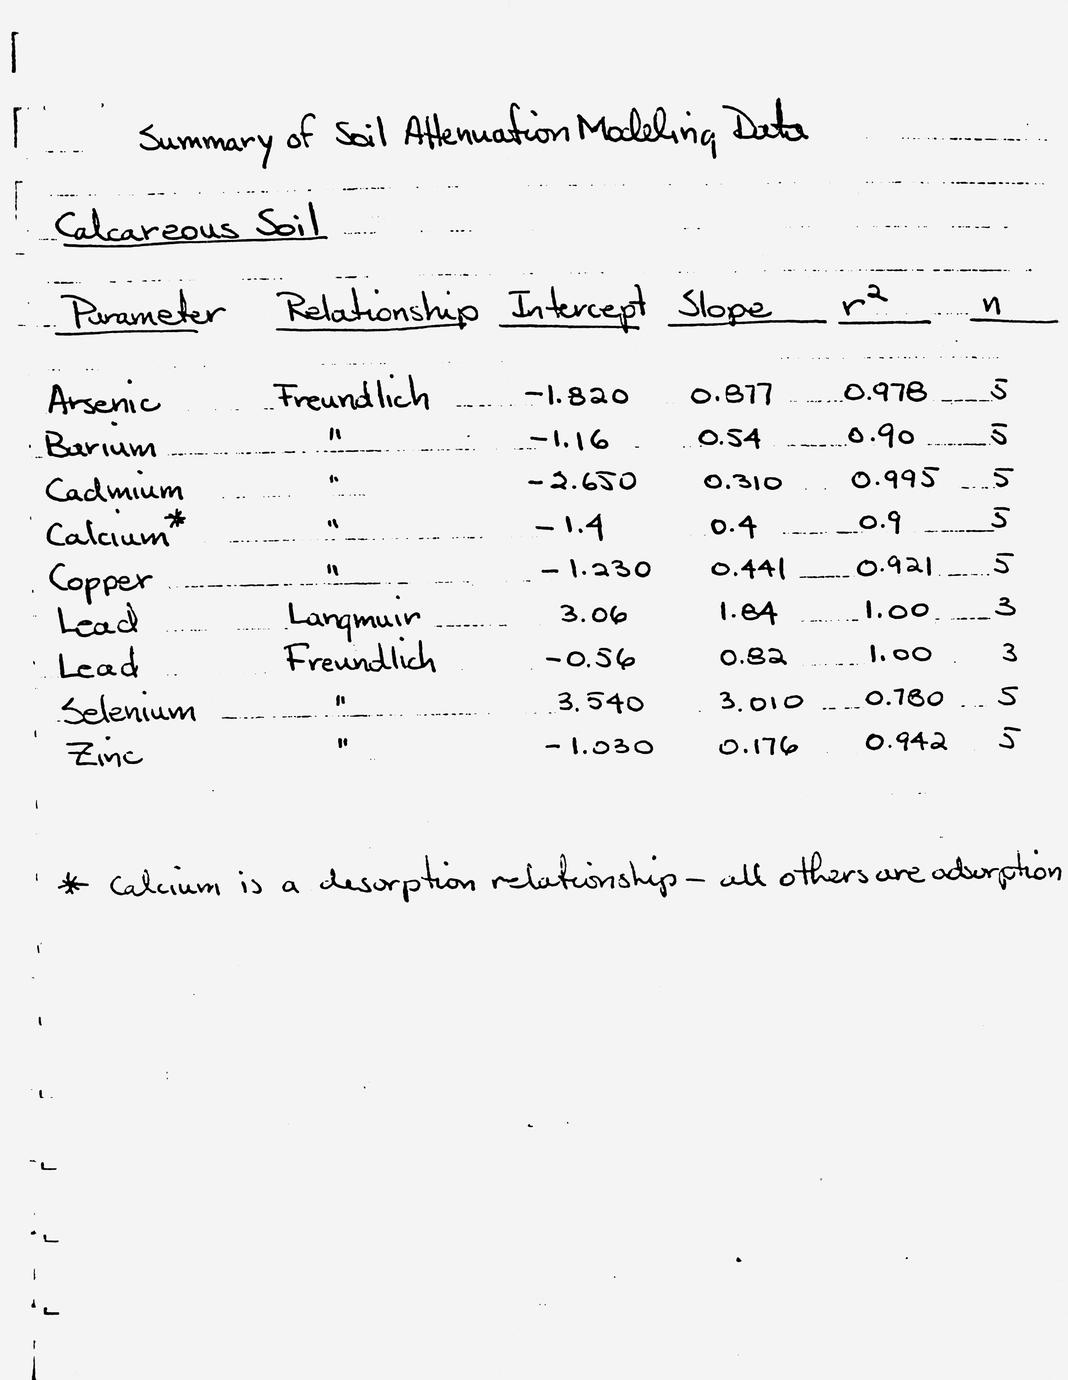 Summary of Soil Attenuation Modeling Data
Calcareous Soil
Parameter Relationship Intercept Slope r² n
Arsenic Freundlich -1.820 0.877 0.978 5
Barium " -1.16 0.54 0.90 5
Cadmium " -2.650 0.310 0.995 5
Calcium* " -1.4 0.4 0.9 5
Copper " -1.230 0.441 0.921 5
Lead Langmuir 3.06 1.84 1.00 3
Lead Freundlich -0.56 0.82 1.00 3
Selenium " 3.540 3.010 0.780 5
Zinc " -1.030 0.176 0.942 5
* Calcium is a desorption relationship - all others are adsorption